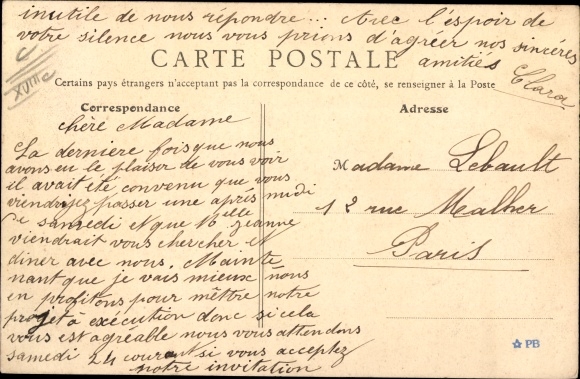 inutile de nous répondre... Avec l'espoir de
votre silence nous vous prions d'agréer nos sincères
amitiés
Clara
CARTE POSTALE
Certains pays étrangers n'acceptent pas la correspondance de ce côté, se renseigner à la Poste
Correspondance
Adresse
XVIII c
chère Madame
La dernière fois que nous
avons eu le plaisir de vous voir
il avait été convenu que vous
viendriez passer une après midi
le samedi et que Melle Jeanne
viendrait vous chercher et
diner avec nous. Mainte
nant que je vais mieux nous
en profitons pour mêttre notre
projet à exécution donc si cela
vous est agréable nous vous attendons
samedi 24 courant si vous acceptez
notre invitation
Madame Lebault
12 rue Malher
Paris
PB